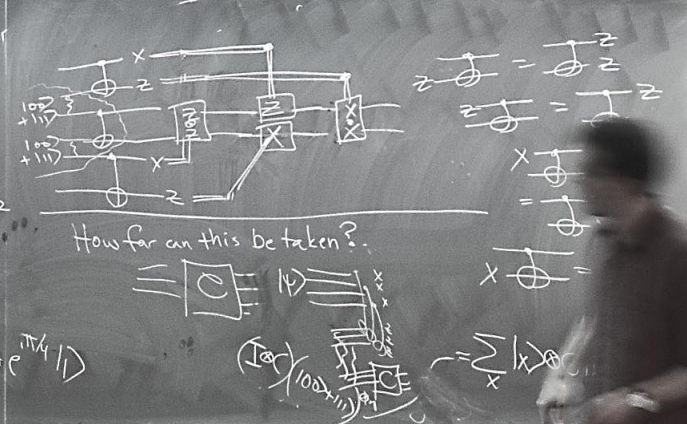 X
Z
|00⟩
+|11⟩
|00⟩
+|11⟩
Z
Z
X
Z
Z
X
X
X
Z
Z = Z
Z = Z
X
=
X =
How far can this be taken?
C |ψ⟩
X
X
X
e^{iπ/4}|1⟩
(I⊗C)(|00⟩+|11⟩)
C
= ∑ |x⟩⊗C
x